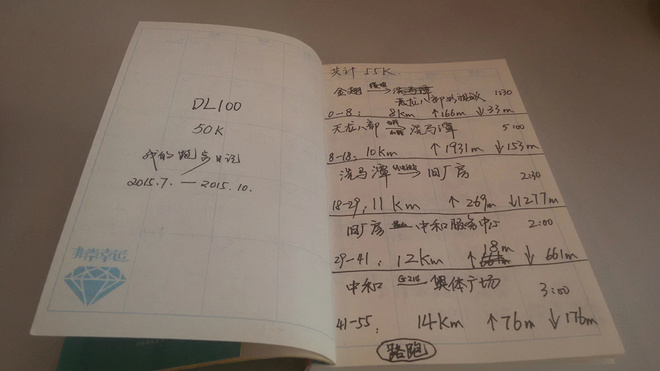 DL100
50K
我的跑步日记
2015.7. — 2015.10.
非常幸运
共计 55K
金翅 → 洗马潭
天龙八部 1:30
0-8: 8km ↑166m ↓33m
天龙八部 → 洗马潭 5:00
8-18: 10km ↑1931m ↓153m
洗马潭 → 旧厂房 2:30
18-29: 11km ↑269m ↓1277m
旧厂房 中和服务中心 2:00
29-41: 12km ↑18m ↓661m
中和 G214 奥体广场 3:00
41-55: 14km ↑76m ↓176m
路跑